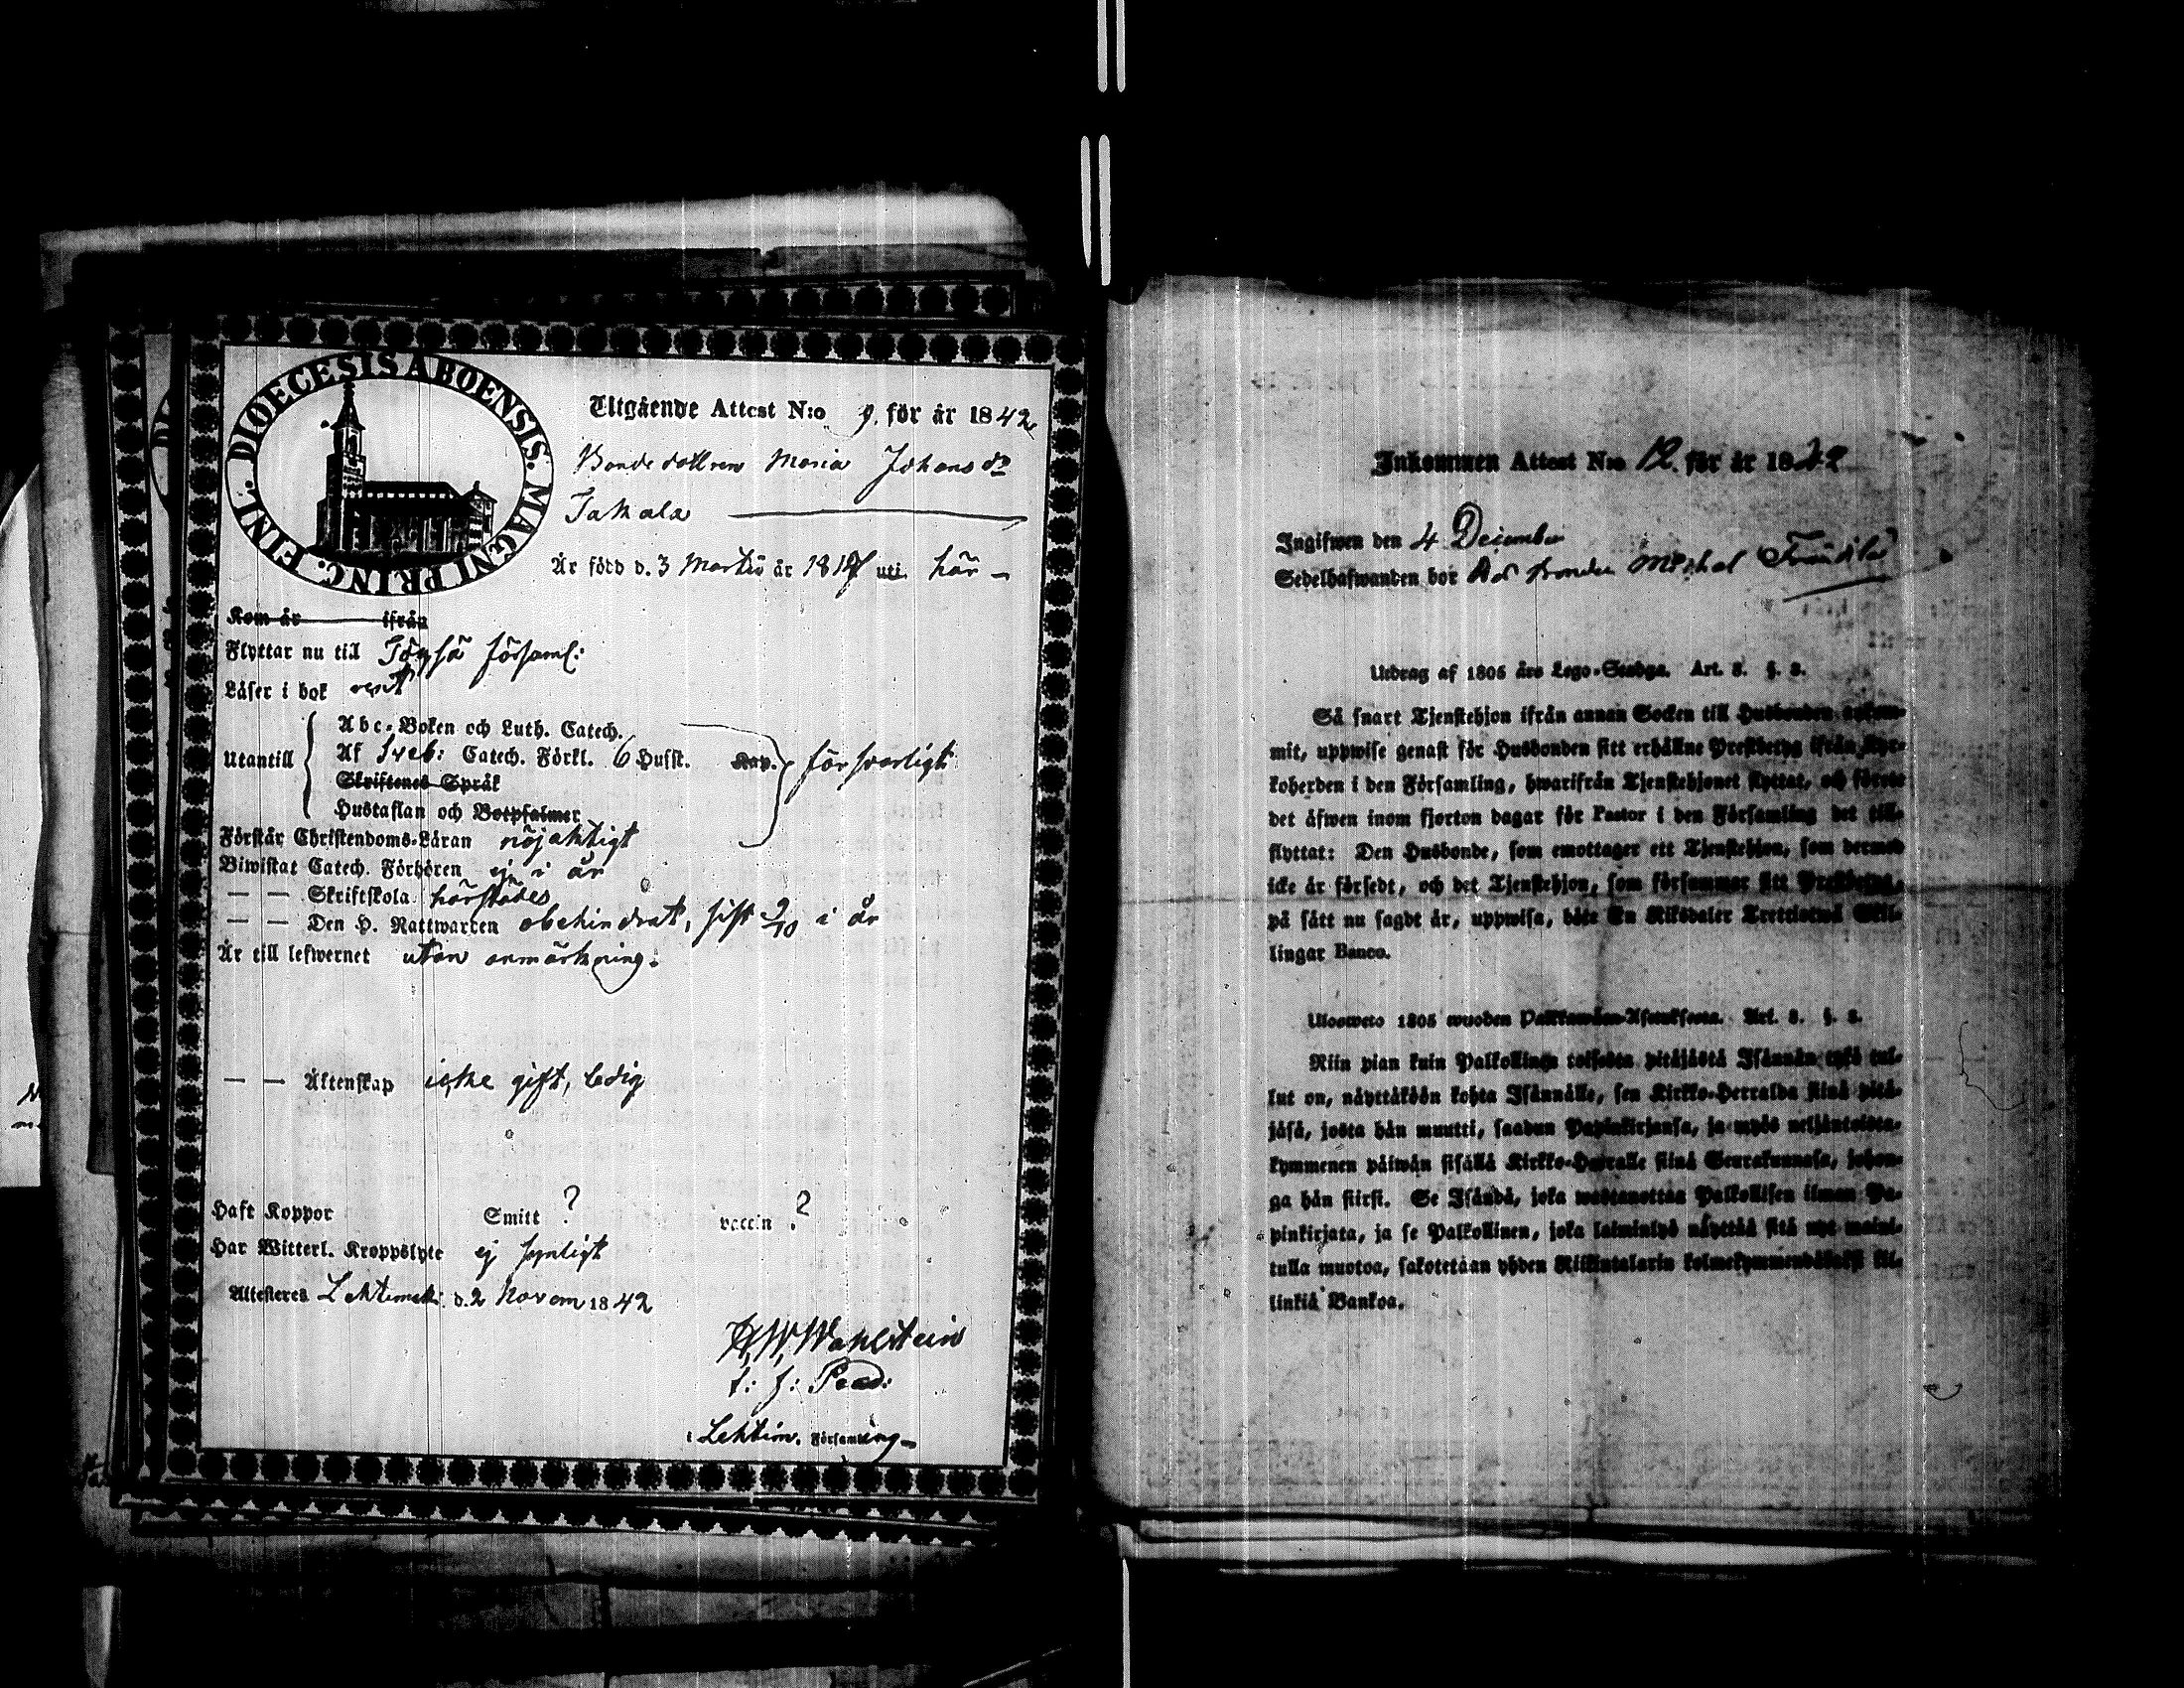 DIOECESIS ABOENSIS. MAGNI PRINC. FINL.
Utgående Attest N:o 9. för år 1842
Bondedottren Maria Johansdr
Takala
Är född d. 3 Martii år 1817 uti här
Kom år ifrån
Flyttar nu till Töysä församl:
Läser i bok rent
Utantill
Abc-Boken och Luth. Catech.
Af Sveb: Catech. Förkl. 6 Husst. Kap. försvarligt
Skriftenes Språk
Hustaflan och Botpsalmer
Förstår Christendoms-Läran nöjaktigt
Biwistat Catech. Förhören ej i år
— — Skriftskola härstädes
— — Den H. Nattwarden obehindrat, sist 9/10 i år
Är till lefwernet utan anmärkning.
— — Äktenskap icke gift, ledig
Haft Koppor Smitt ? vaccin ?
Har Witterl. Kroppslyte ej synligt
Attesteres Lehtimäki d. 2 Novem 1842
H. W. Wahlstein
t: f: Pred:
i Lehtim. Församling
Inkommen Attest N:o 12. för år 1842
Ingifwen den 4 December
Sedelhafwanden bor hos bonden Michel
Utdrag af 1805 års Lego-Stadga. Art. 3. §. 3.
Så snart Tjenstehjon ifrån annan Socken till Husbonden ankom-
mit, uppwise genast för Husbonden sitt erhållne Prestbetyg ifrån Kyr-
koherden i den Församling, hwarifrån Tjenstehjonet flyttat, och förete
det äfwen inom fjorton dagar för Pastor i den Församling det till-
flyttat: Den Husbonde, som emottager ett Tjenstehjon, som dermed
icke är försedt, och det Tjenstehjon, som försummar sitt Prestbetyg,
på sätt nu sagdt är, uppwisa, böte En Riksdaler Trettiotwå Skil-
lingar Banco.
Ulosweto 1805 wuoden Palkkawäen-Asetuksesta. Art. 3. §. 3.
Niin pian kuin Palkollinen toisesta pitäjästä Isännän tykö tul-
lut on, näyttäköön kohta Isännälle, sen Kirkko-Herralda siinä pitä-
jäsä, josta hän muutti, saadun Papinkirjansa, ja myös neljäntoista-
kymmenen päiwän sisällä Kirkko-Herralle siinä Seurakunnasa, johon-
ga hän siirsi. Se Isändä, joka wastanottaa Palkollisen ilman Pa-
pinkirjata, ja se Palkollinen, joka laiminlyö näyttää sitä nyt maini-
tulla muotoa, sakotetaan yhden Riikintalarin kolmekymmendäkaksi kil-
linkiä Bankoa.